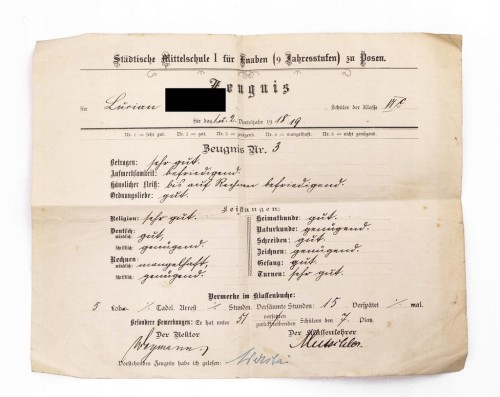 Städtische Mittelschule I für Knaben (9 Jahresstufen) zu Posen.
Zeugnis
für Lucian Schüler der Klasse VI
für das 2. Vierteljahr 1918/19
Nr. 1 = sehr gut. 2 = gut. 3 = genügend. 4 = mangelhaft. 5 = nicht genügend.
Zeugnis Nr. 3
Betragen: sehr gut.
Aufmerksamkeit: befriedigend.
Häuslicher Fleiß: bis auf Rechnen befriedigend.
Ordnungsliebe: gut.
Leistungen:
Religion: sehr gut. Heimatkunde: gut.
Deutsch: Naturkunde: genügend.
mündlich: gut, Schreiben: gut.
schriftlich: genügend. Zeichnen: genügend.
Rechnen: Gesang: gut.
mündlich: mangelhaft, Turnen: sehr gut.
schriftlich: genügend.
Vermerke im Klassenbuche:
5 Lobe, Tadel, Arrest Stunden. Versäumte Stunden: 15 Verspätet mal.
Besondere Bemerkungen: Er hat unter 51 Schülern den 7. Platz.
Der Rektor Der Klassenlehrer
Vorstehendes Zeugnis habe ich gelesen: